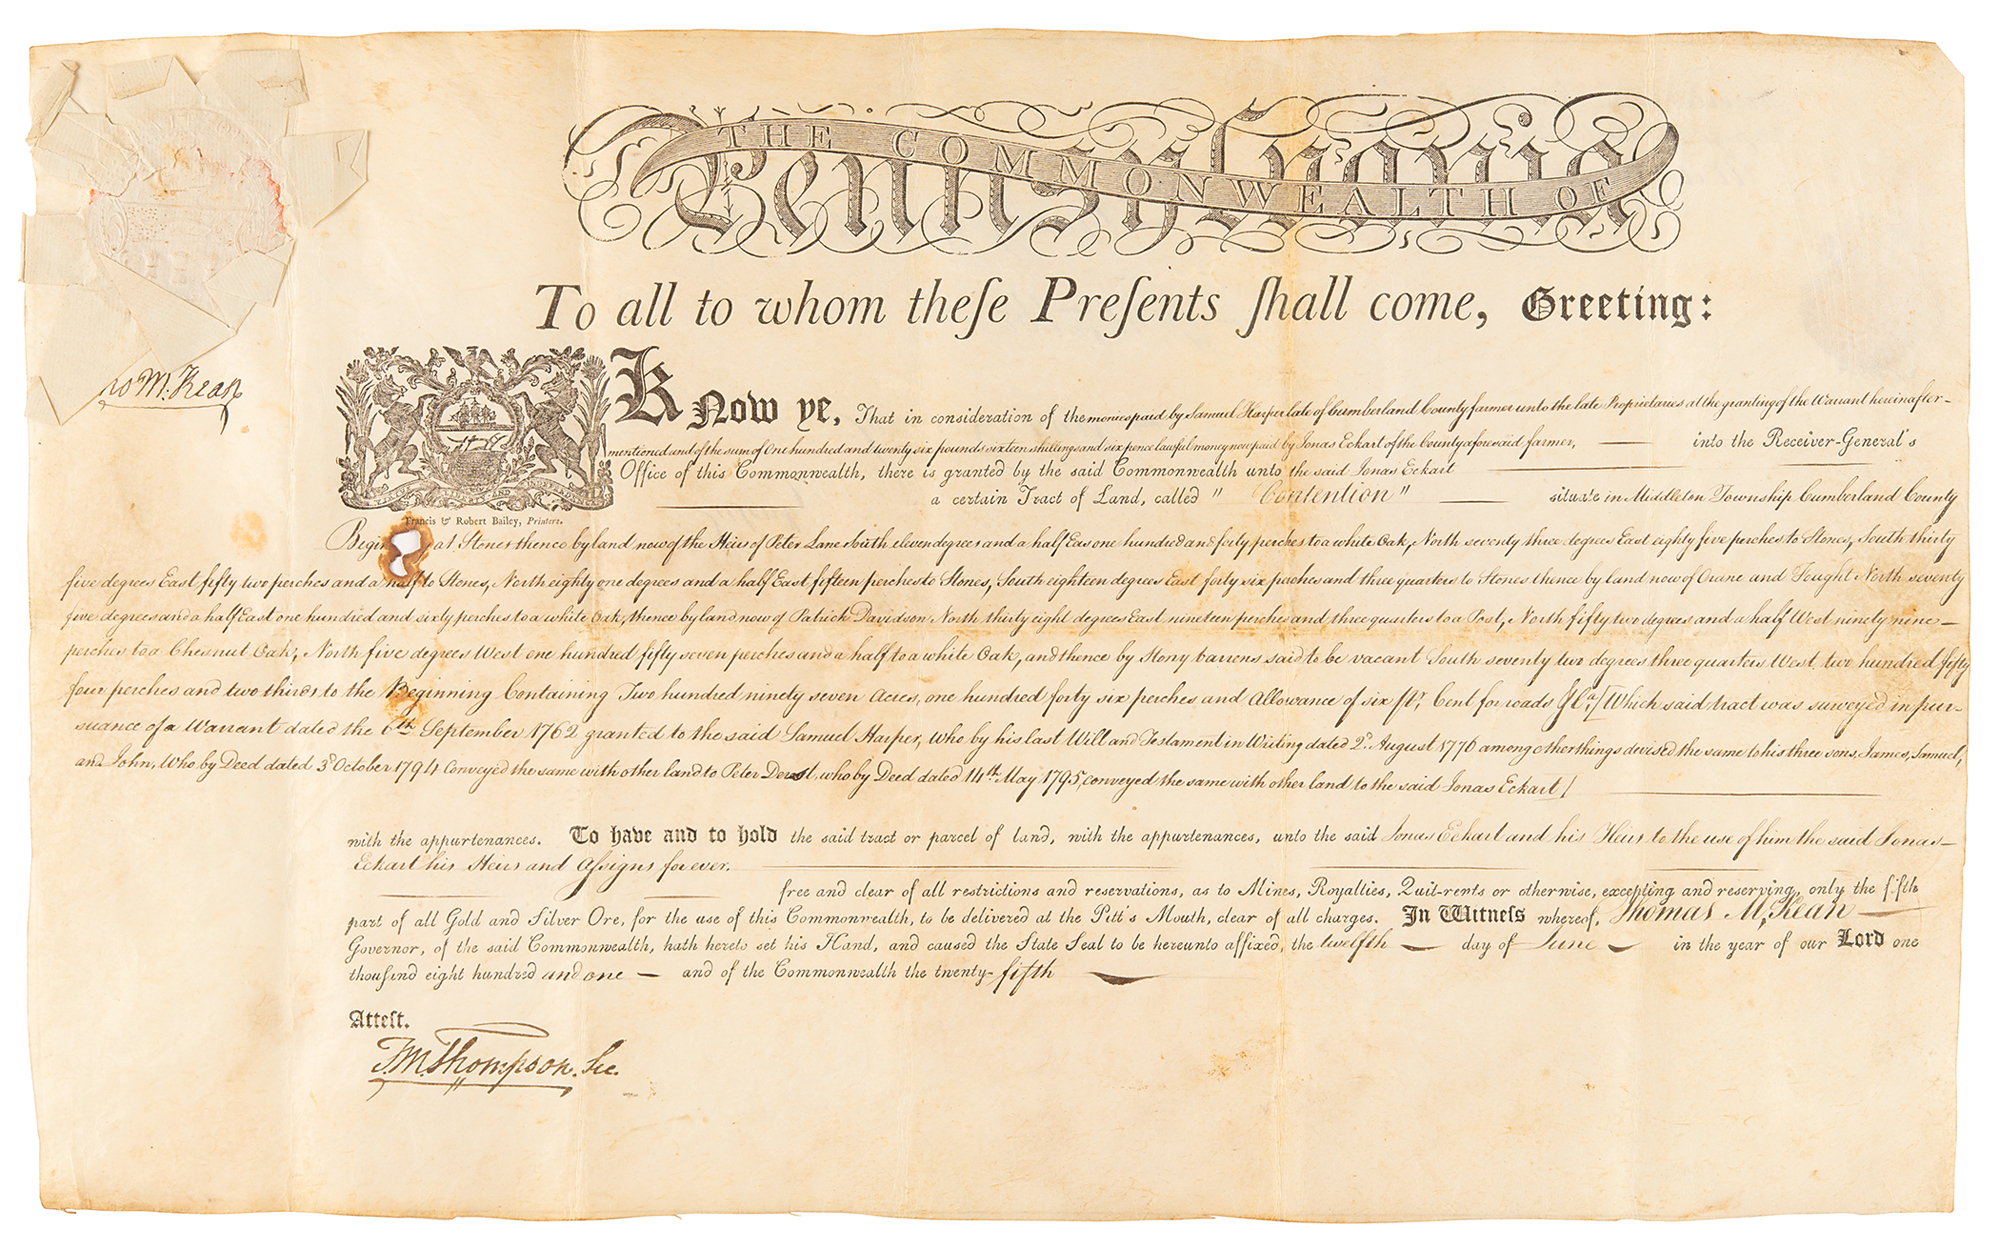 THE COMMONWEALTH OF
Pennsylvania
To all to whom theſe Preſents ſhall come, Greeting:
M.Kean
VIRTUE LIBERTY AND INDEPENDENCE
Francis & Robert Bailey, Printers.
Know ye, That in consideration of the monies paid by Samuel Harper late of Cumberland County farmer unto the late Proprietaries at the granting of the Warrant hereinafter-
mentioned and of the sum of One hundred and twenty six pounds sixteen shillings and six pence lawful money now paid by Jonas Eckart of the County aforesaid farmer, — into the Receiver-General's
Office of this Commonwealth, there is granted by the said Commonwealth unto the said Jonas Eckart
a certain Tract of Land, called "Contention" — situate in Middleton Township Cumberland County
Begin at Stones thence by land now of the Heirs of Peter Lane South eleven degrees and a half East one hundred and forty perches to a white Oak, North seventy three degrees East eighty five perches to Stones, South thirty
five degrees East fifty two perches and a half to Stones, North eighty one degrees and a half East fifteen perches to Stones, South eighteen degrees East forty six perches and three quarters to Stones thence by land now of Crane and Fought North seventy
five degrees and a half East one hundred and sixty perches to a white Oak, thence by land now of Patrick Davidson North thirty eight degrees East nineteen perches and three quarters to a Post, North fifty two degrees and a half West ninety nine—
perches to a Chesnut Oak, North five degrees West one hundred fifty seven perches and a half to a white Oak, and thence by Stony barrens said to be vacant South seventy two degrees three quarters West, two hundred fifty
four perches and two thirds to the Beginning Containing Two hundred ninety seven Acres, one hundred forty six perches and Allowance of six pr. Cent for roads &ca. [Which said tract was surveyed in pur-
suance of a Warrant dated the 6th September 1762 granted to the said Samuel Harper, Who by his last Will and Testament in Writing dated 2d August 1776 among other things devised the same to his three sons, James, Samuel,
and John, Who by Deed dated 3d October 1794 Conveyed the same with other land to Peter who by Deed dated 14th May 1795, conveyed the same with other land to the said Jonas Eckart]
with the appurtenances. To have and to hold the said tract or parcel of land, with the appurtenances, unto the said Jonas Eckart and his Heirs to the use of him the said Jonas—
Eckart his Heirs and Aſsigns forever.
free and clear of all restrictions and reservations, as to Mines, Royalties, Quit-rents or otherwise, excepting and reserving, only the fifth
part of all Gold and Silver Ore, for the use of this Commonwealth, to be delivered at the Pitt's Mouth, clear of all charges. In Witneſs whereof, Thomas M.Kean —
Governor, of the said Commonwealth, hath hereto set his Hand, and caused the State Seal to be hereunto affixed, the twelfth — day of June — in the year of our Lord one
thousand eight hundred and one — and of the Commonwealth the twenty-fifth
Atteſt.
T.M.Thompson. Sec.